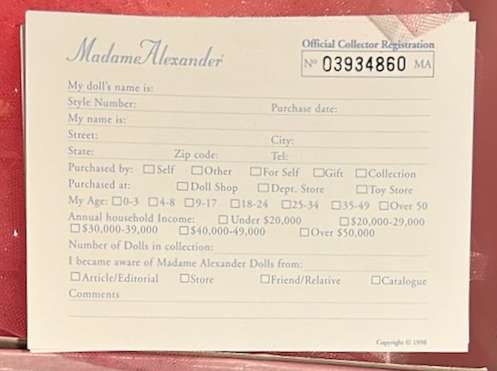 Madame Alexander®
Official Collector Registration
Nº 03934860 MA
My doll's name is:
Style Number: Purchase date:
My name is:
Street: City:
State: Zip code: Tel:
Purchased by: ☐Self ☐Other ☐For Self ☐Gift ☐Collection
Purchased at: ☐Doll Shop ☐Dept. Store ☐Toy Store
My Age: ☐0-3 ☐4-8 ☐9-17 ☐18-24 ☐25-34 ☐35-49 ☐Over 50
Annual household Income: ☐Under $20,000 ☐$20,000-29,000
☐$30,000-39,000 ☐$40,000-49,000 ☐Over $50,000
Number of Dolls in collection:
I became aware of Madame Alexander Dolls from:
☐Article/Editorial ☐Store ☐Friend/Relative ☐Catalogue
Comments
Copyright © 1998